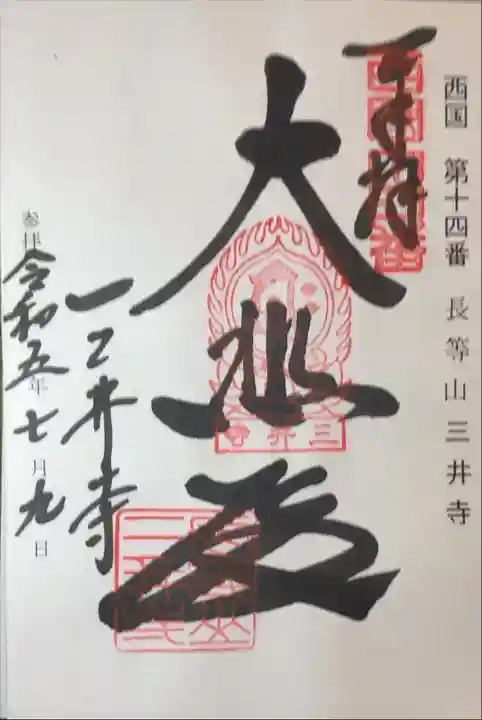 西国 第十四番 長等山 三井寺
奉拝
大悲殿
三井寺
三井寺
参拝 令和五年七月九日